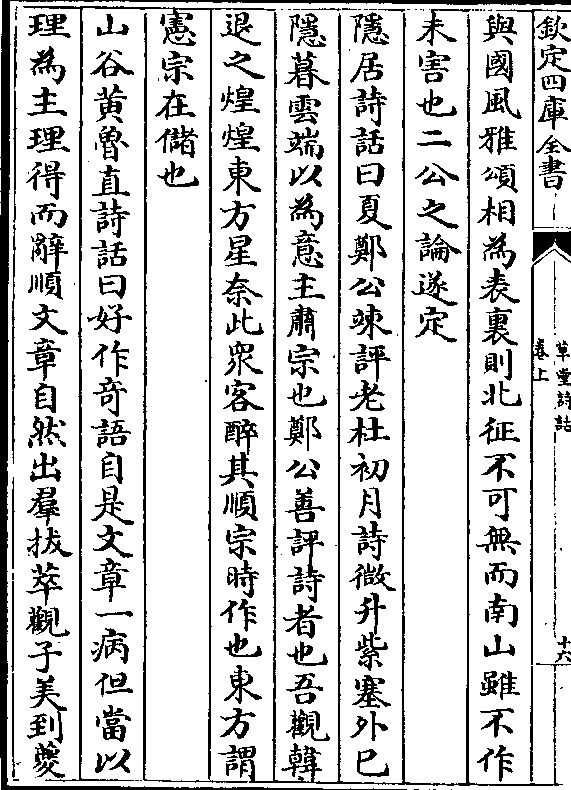 欽定四庫全書
草堂詩話
卷上
十六
與國風雅頌相為表裏則北征不可無而南山雖不作
未害也二公之論遂定
隱居詩話曰夏鄭公竦評老杜初月詩微升紫塞外已
隱暮雲端以為意主肅宗也鄭公善評詩者也吾觀韓
退之煌煌東方星奈此衆客醉其順宗時作也東方謂
憲宗在儲也
山谷黃魯直詩話曰好作奇語自是文章一病但當以
理為主理得而辭順文章自然出羣拔萃觀子美到夔